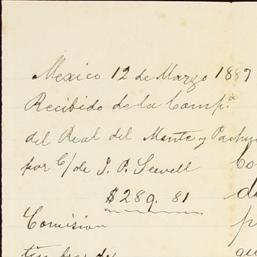 Mexico 12 de Marzo 1887
Recibido de la Comp.ª
del Real del Monte y Pachu
por C/ de J. P. Sewell
$289. 81
Comision